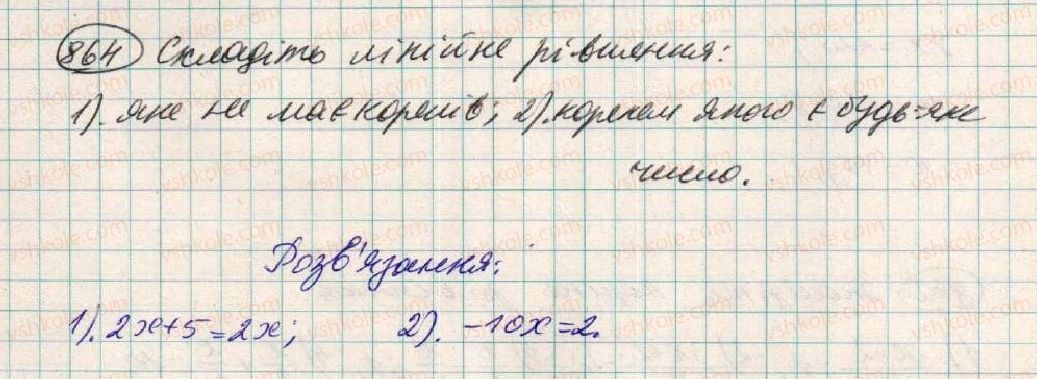 864 Складіть лінійне рівняння:
1). яке не має коренів; 2). коренем якого є будь-яке
число.
Розв'язання:
1). 2x+5=2x; 2). -10x=2.